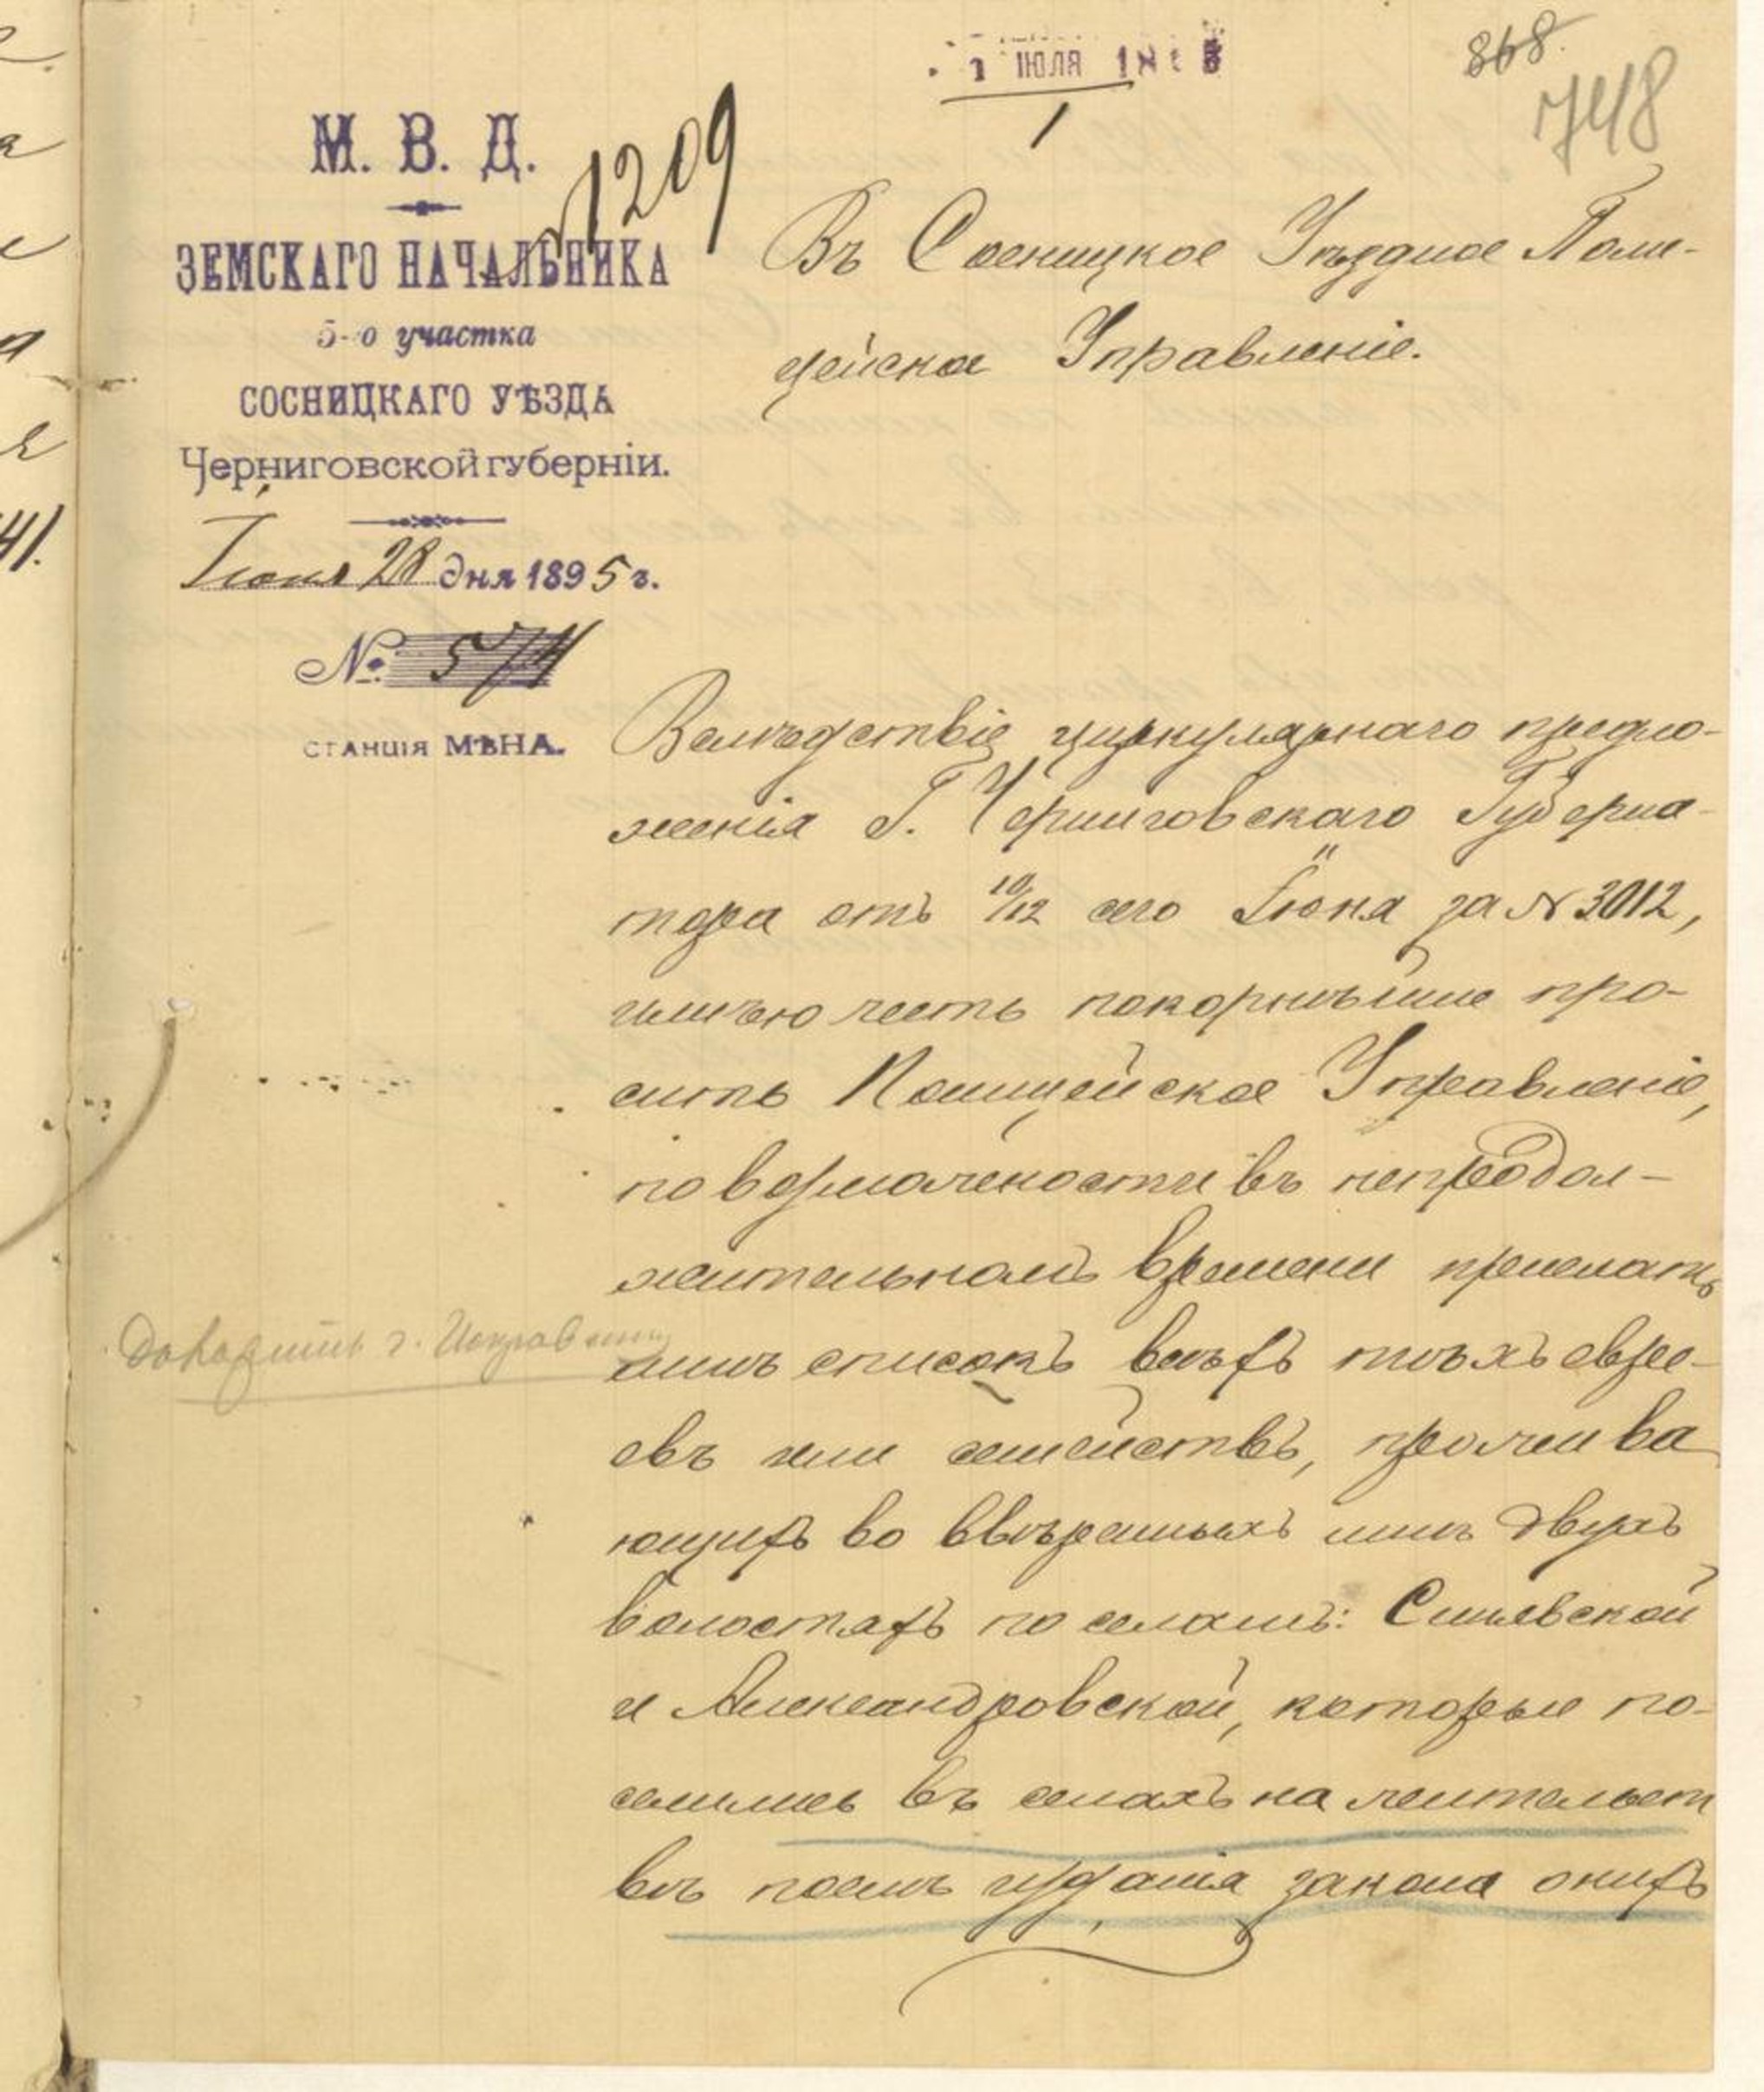 1 ИЮЛЯ 1895
1
868
748
М. В. Д.
№ 1209
ЗЕМСКАГО НАЧАЛЬНИКА
5-о участка
СОСНИЦКАГО УѢЗДА
Черниговской губерніи.
Іюня 28 дня 1895 г.
№ 574
СТАНЦІЯ МѢНА.
Въ Сосницкое Уѣздное Поли-
цейское Управленіе.
Вслѣдствіе циркулярнаго предло-
женія Г. Черниговскаго Губерна-
тора отъ 10/12 сего Іюня за № 3012,
имѣю честь покорнѣйше про-
сить Полицейское Управленіе,
по возможности въ непродол-
жительномъ времени прислать
мнѣ списокъ всѣхъ тѣхъ евре-
евъ или семействъ, прожива
ющихъ во ввѣренныхъ мнѣ двухъ
волостяхъ по селамъ: Синявской
и Александровской, которые по-
селились въ селахъ на жительст
вѣ послѣ изданія закона о нихъ
Доложить г. Исправнику
41.